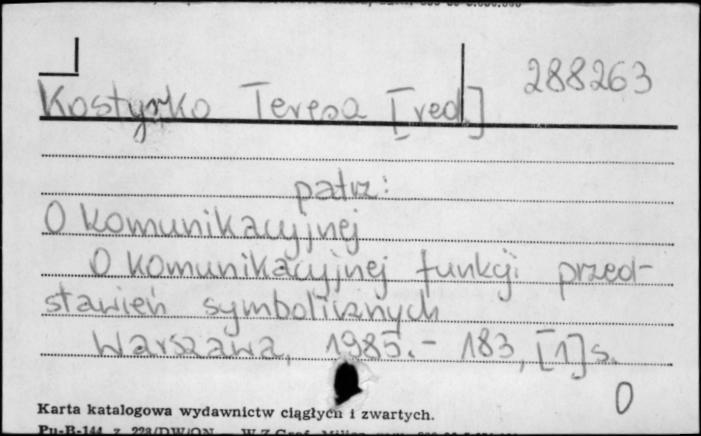 288263
Kostyrko Teresa [red.]
patrz:
O komunikacyjnej
O komunikacyjnej funkcji przed-
stawień symbolicznych
Warszawa, 1985.- 183, [1] s.
0
Karta katalogowa wydawnictw ciągłych i zwartych.
Pu-B-144 z. 228/DW/ON —